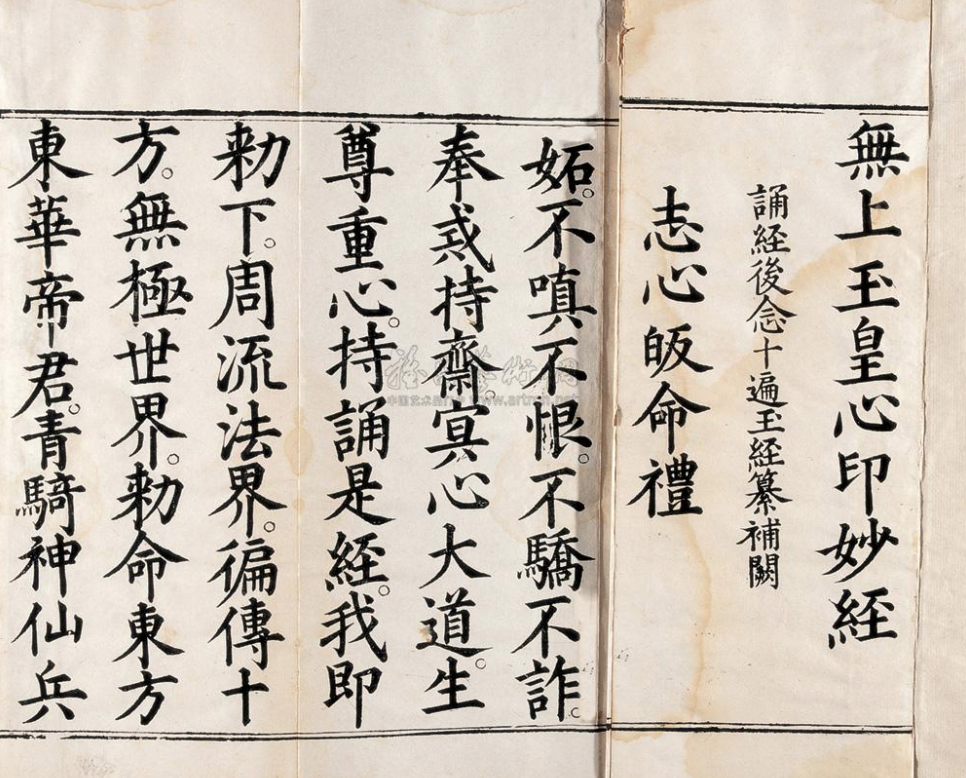 無上玉皇心印妙経
誦経後念十遍玉経纂補闕
志心皈命禮
妬。不嗔不恨。不驕不詐。
奉戒持齋。寘心大道。生
尊重心。持誦是経。我即
勑下。周流法界。徧傳十
方。無極世界。勑命東方
東華帝君。青騎神仙兵
中国艺术品 www.artron.net